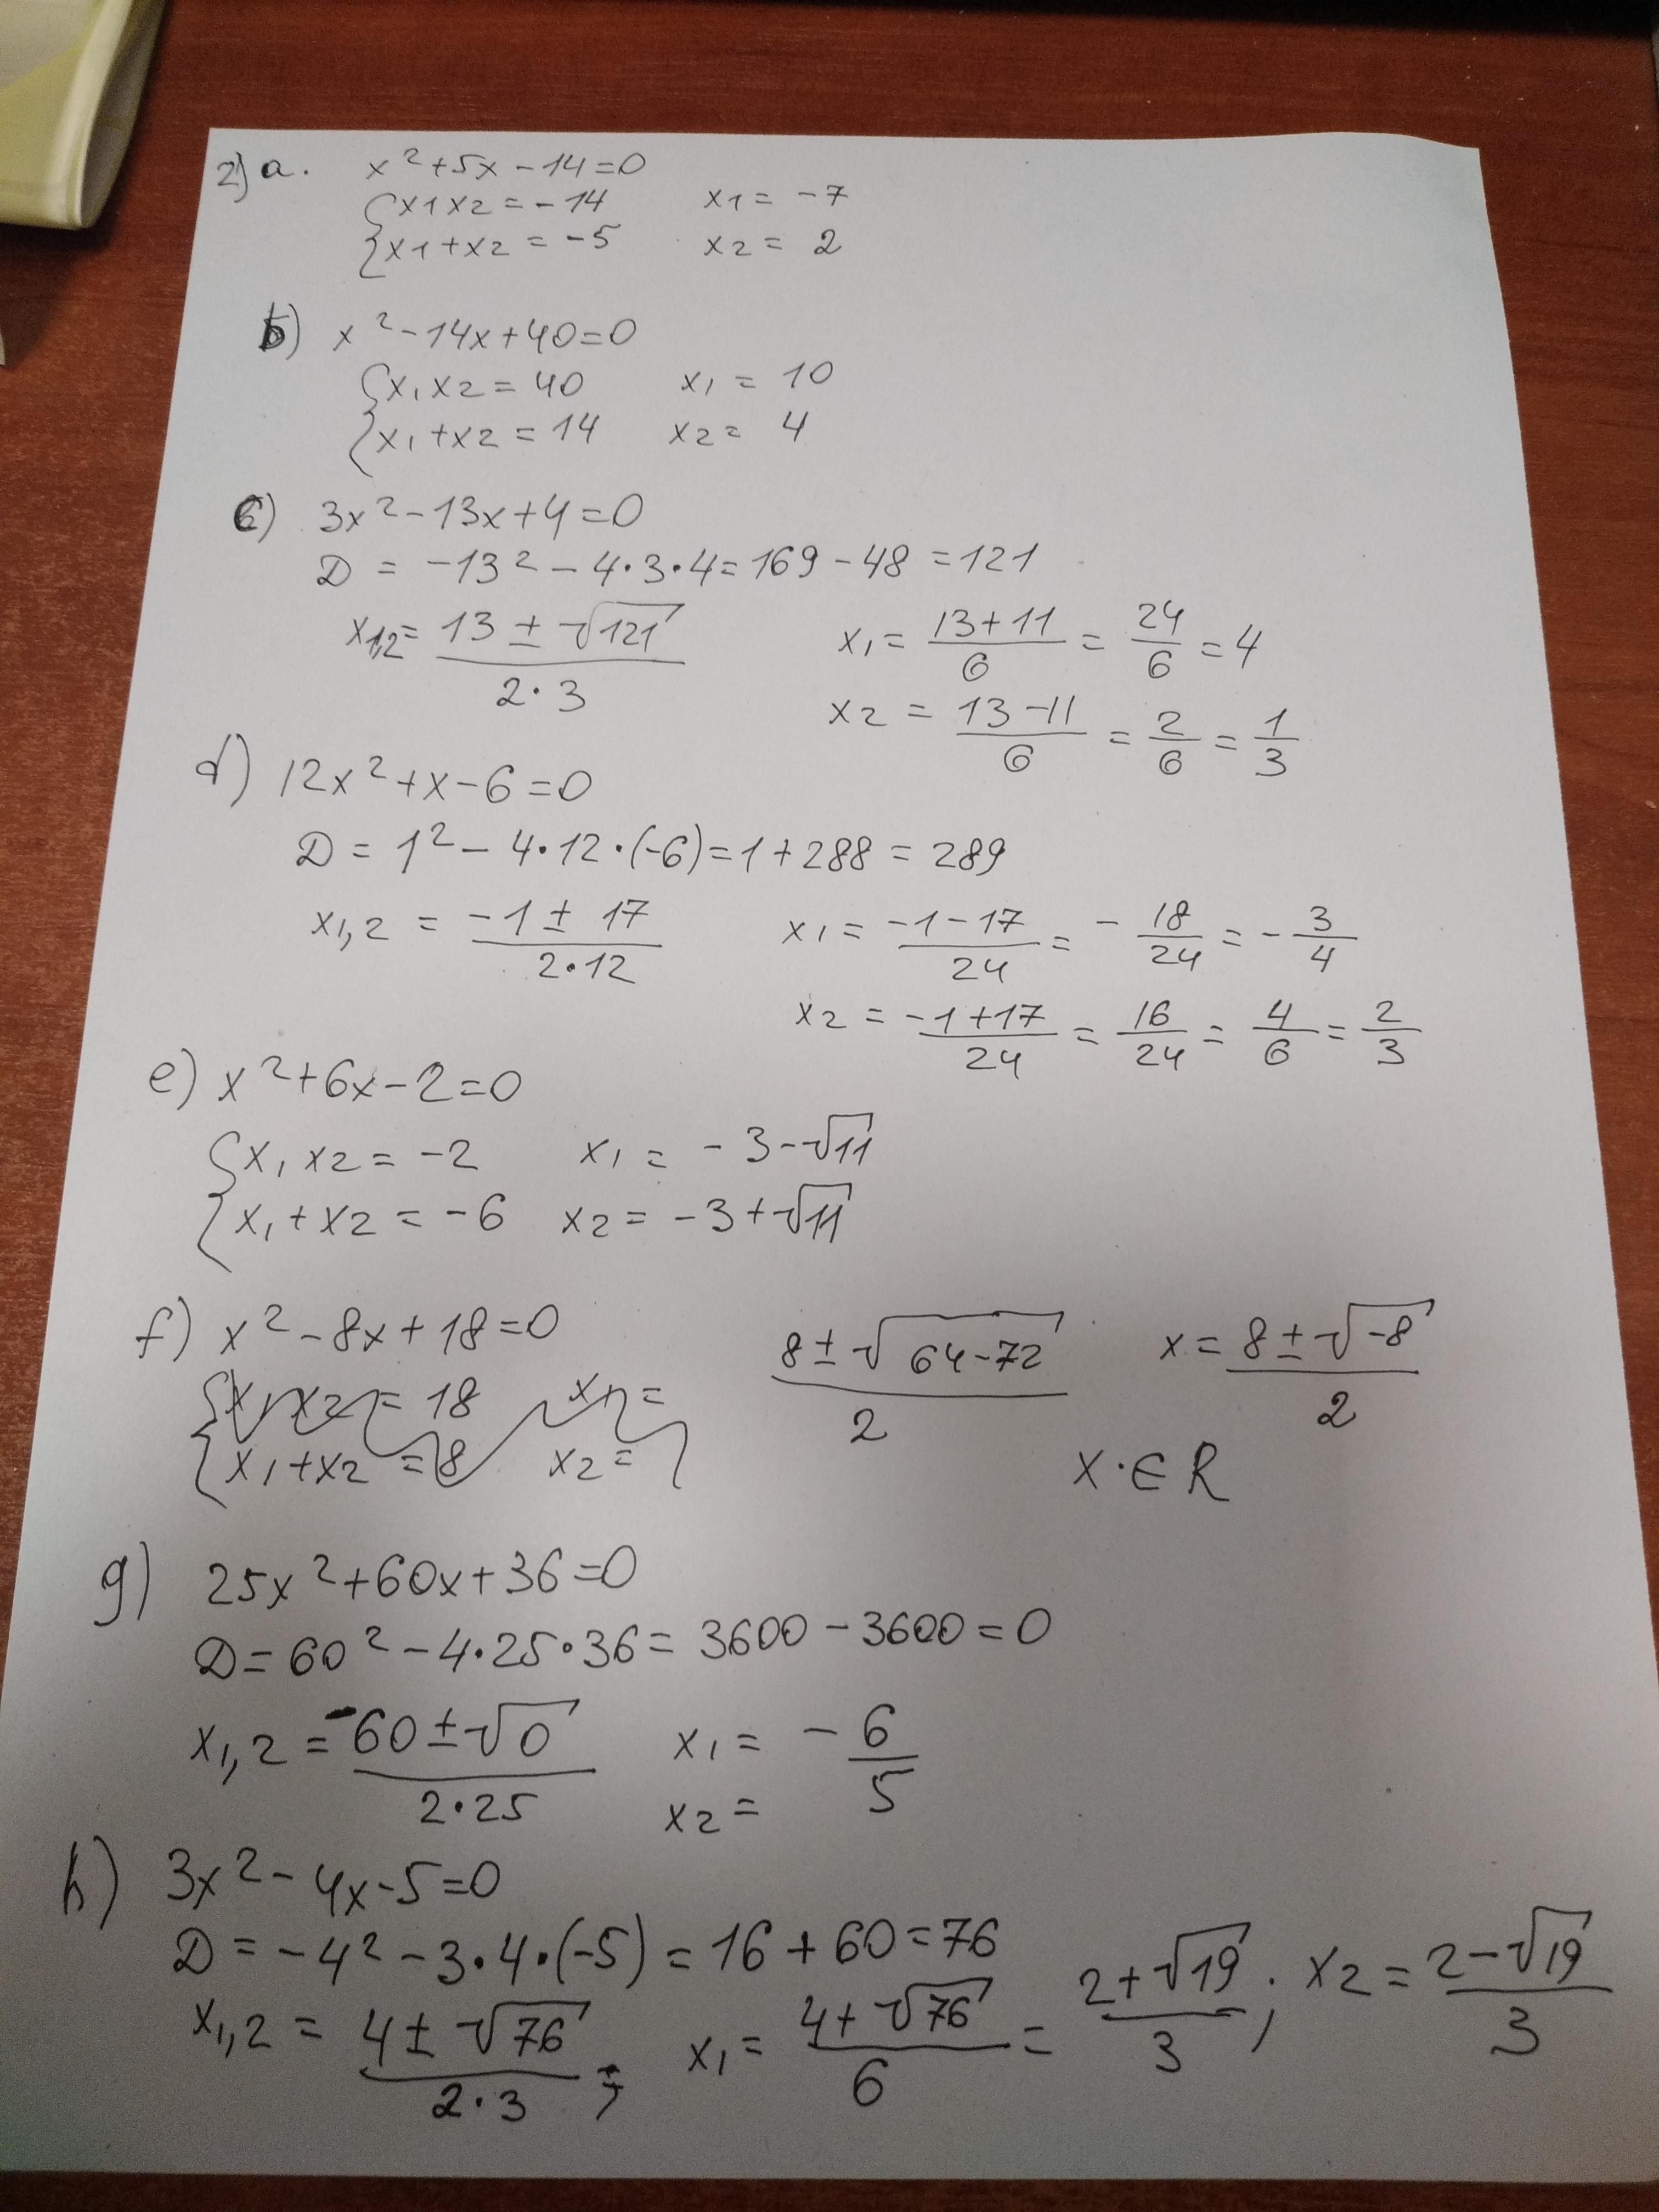 2) a. x²+5x-14=0
{x1x2=-14 x1=-7
{x1+x2=-5 x2=2
b) x²-14x+40=0
{x₁x2=40 x₁=10
{x₁+x2=14 x2=4
c) 3x²-13x+4=0
D=-13²-4·3·4=169-48=121
x1,2=(13±√121)/(2·3) x₁=(13+11)/6=24/6=4
x2=(13-11)/6=2/6=1/3
d) 12x²+x-6=0
D=1²-4·12·(-6)=1+288=289
x₁,2=(-1±17)/(2·12) x₁=(-1-17)/24=-18/24=-3/4
x2=(-1+17)/24=16/24=4/6=2/3
e) x²+6x-2=0
{x₁x2=-2 x₁=-3-√11
{x₁+x2=-6 x2=-3+√11
f) x²-8x+18=0 (8±√(64-72))/2 x=(8±√-8)/2
{x₁x2=18 x₁=
{x₁+x2=8 x2= x·∈R
g) 25x²+60x+36=0
D=60²-4·25·36=3600-3600=0
x₁,2=(-60±√0)/(2·25) x₁= -6/5
x2=
h) 3x²-4x-5=0
D=-4²-3·4·(-5)=16+60=76
x₁,2=(4±√76)/(2·3); x₁=(4+√76)/6=(2+√19)/3; x2=(2-√19)/3